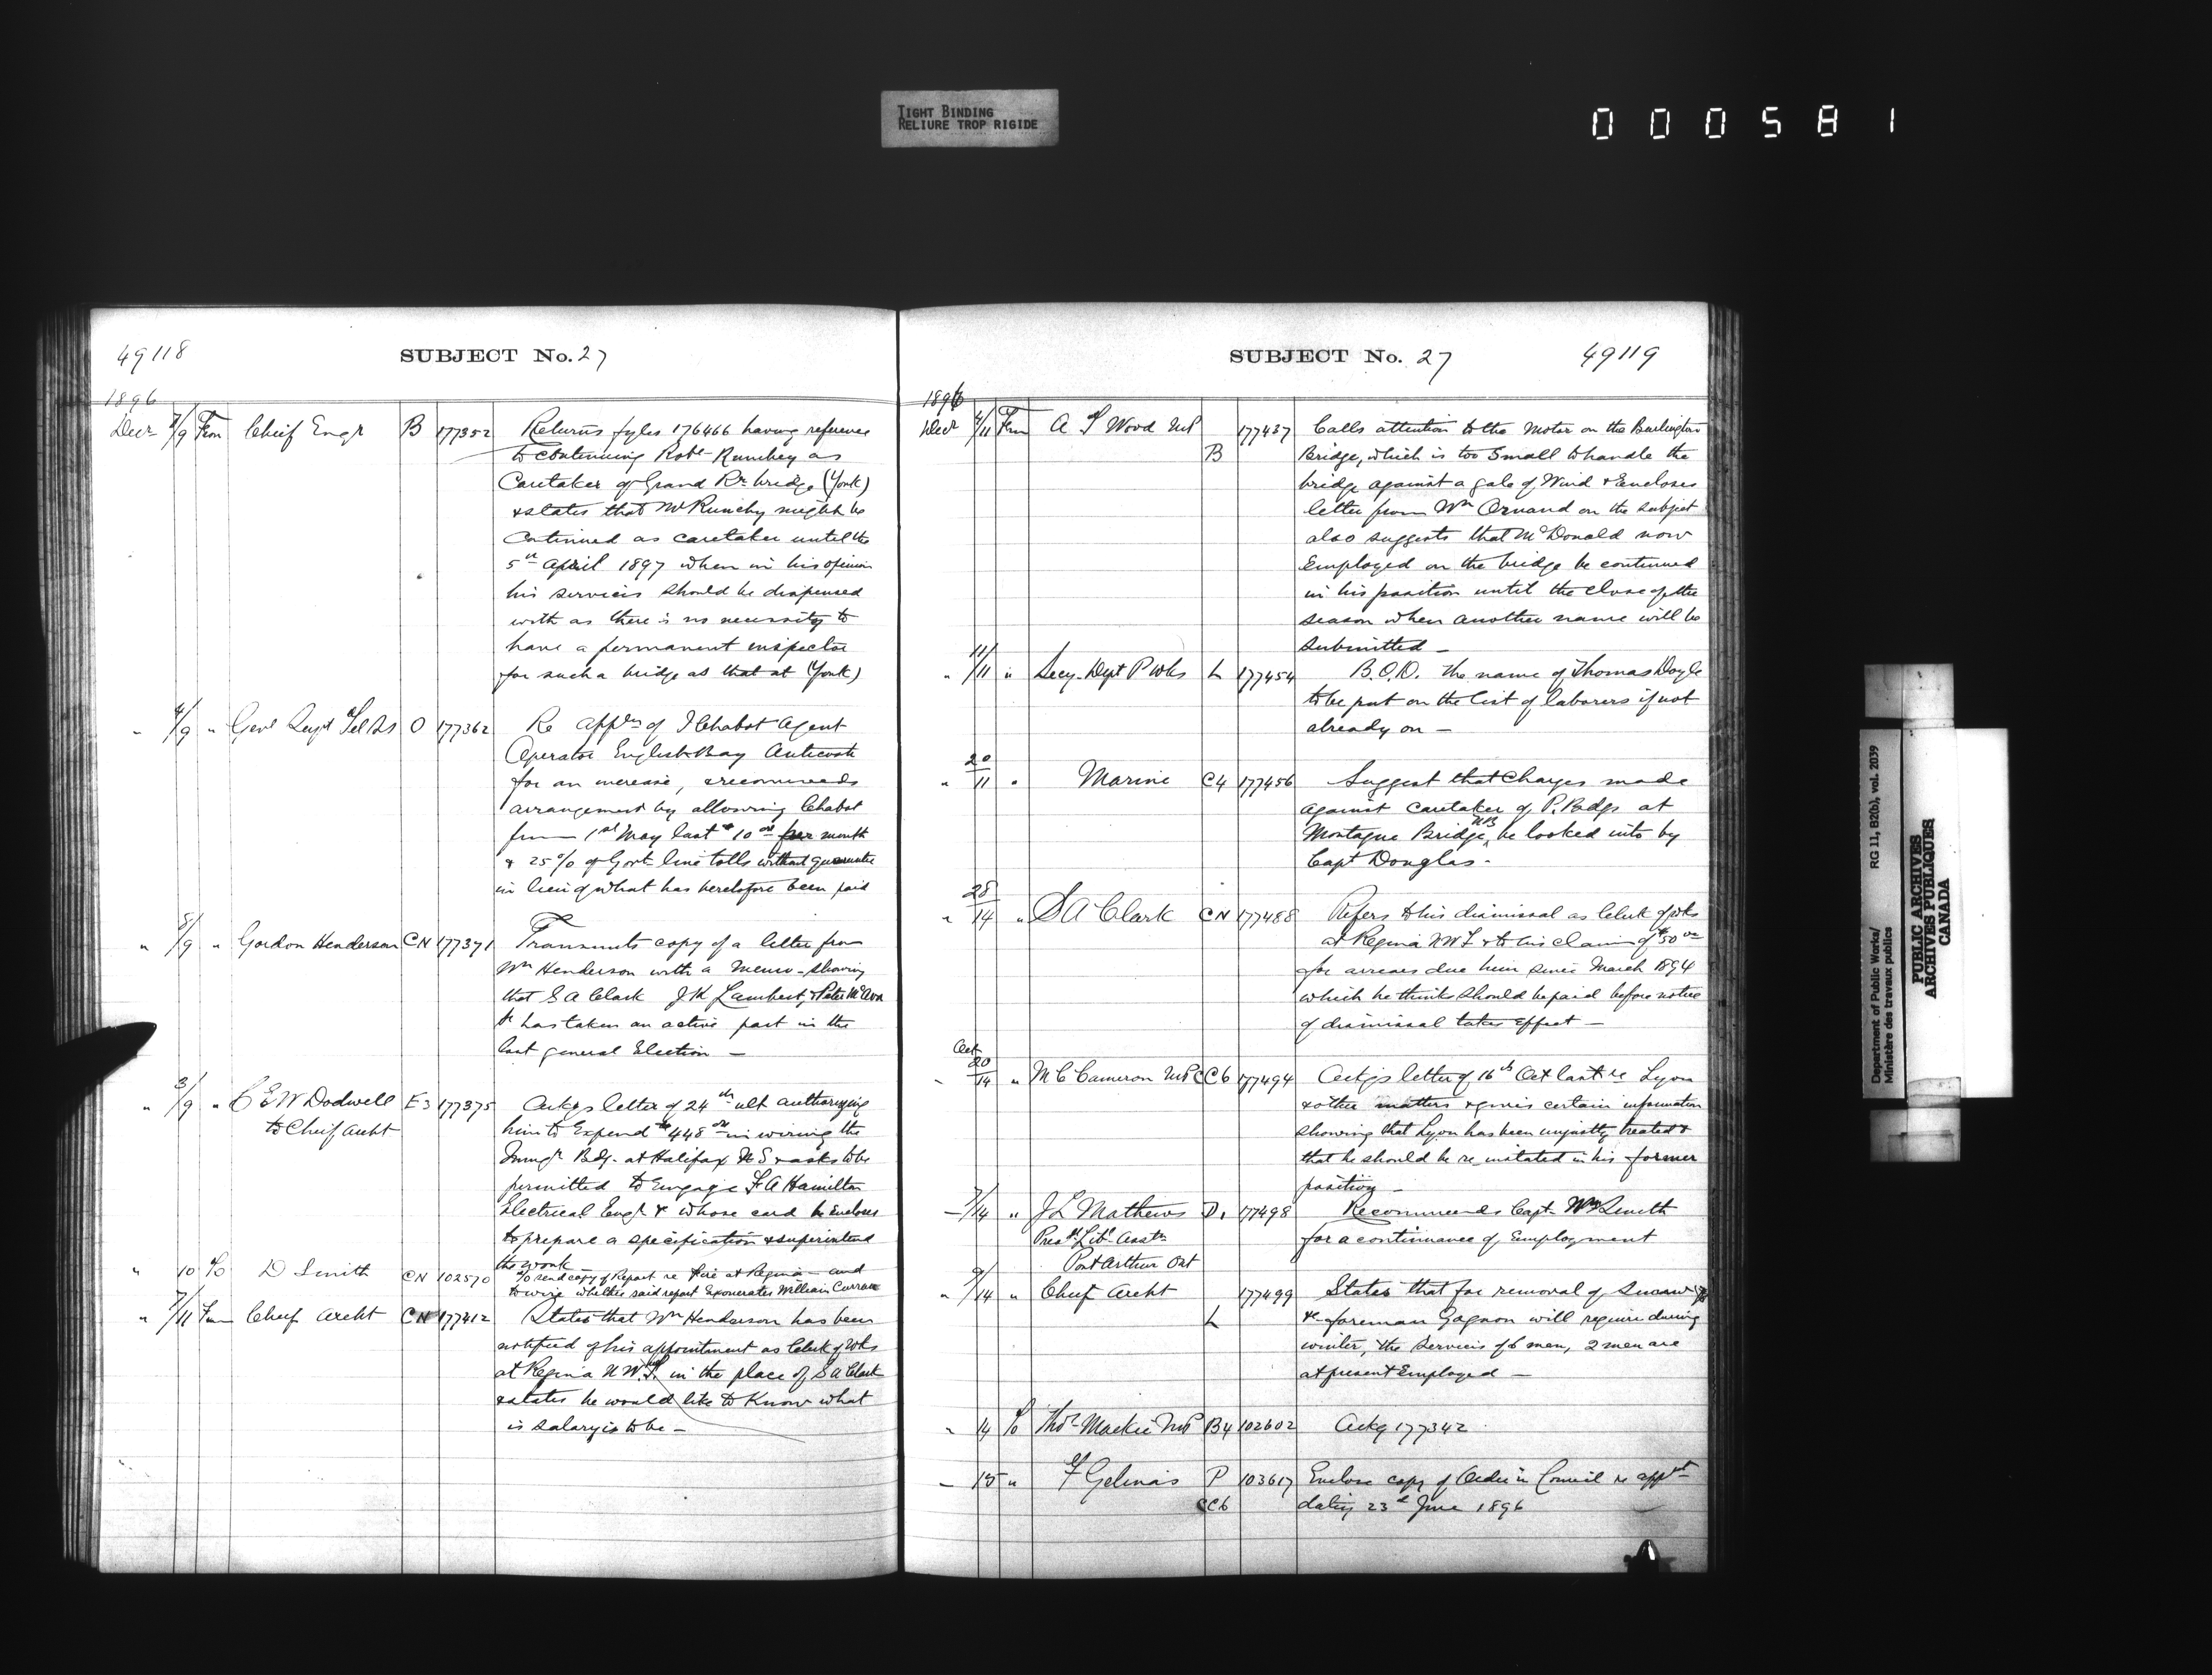 TIGHT BINDING
RELIURE TROP RIGIDE
000581
49118
SUBJECT No. 27
1896
Decr 7/9 From Chief Engr B 177352 Returns fyles 176466 having reference
to continuing Robt Rumhey as
Caretaker of Grand Rr bridge (York)
& states that Mr Runchy might be
continued as caretaker until the
5th April 1897 when in his opinion
his services should be dispensed
with as there is no necessity to
have a permanent inspector
for such a bridge as that at (York)
" 4/9 " Genl Supt Tel Ss O 177362 Re appln of J Chabot Agent
Operator English Bay Anticosti
for an increase, & recommends
arrangement by allowing Chabot
from 1st May last $10 00 per month
& 25% of Govt line tolls without guarantee
in lieu of what has heretofore been paid
" 8/9 " Gordon Henderson CN 177371 Transmits copy of a letter from
Wm Henderson with a memo - showing
that S A Clark J K Lambert, & Peter McAra
Jr has taken an active part in the
last general Election -
" 3/9 " C E W Dodwell E3 177375 Ackgs letter of 24th ult authorizing
to Chief Archt him to Expend $448 00 in wiring the
Immgn Bdg. at Halifax N S & asks to be
permitted to Engage F. A Hamilton
Electrical Engr & whose card he Encloses
to prepare a specification & superintend
the work
" 10 To D Smith CN 102570 To send copy of Report re Fire at Regina - and
to wire whether said report Exonerates William Curran
" 7/11 From Chief Archt CN 177412 States that Wm Henderson has been
notified of his appointment as Clerk of Wks
at Regina N W.T. in the place of S A Clark
& states he would like to know what
is salary is to be -
SUBJECT No. 27
49119
1896
Decr 4/11 From A T Wood MP B 177437 Calls attention to the Motor on the Burlington
Bridge, which is too Small to handle the
bridge against a gale of Wind & Encloses
letter from Wm on the subject
also suggests that McDonald now
Employed on the bridge be continued
in his position until the close of the
season when another name will be
submitted -
" 11/11 " Secy. Dept P Wks L 177454 B.O.D. the name of Thomas Doyle
to be put on the list of laborers if not
already on -
" 20/11 " Marine C4 177456 Suggest that Charges made
against caretaker of P. Bdgs at
Montague Bridge, NB be looked into by
Capt Douglas -
" 28/14 " S A Clark CN 177488 Refers to his dismissal as Clerk of Wks
at Regina N W T & to his claim of $50 00
for arrears due him since March 1894
which he thinks should be paid before notice
of dismissal takes effect -
Oct
" 20/14 " M C Cameron MP CC6 177494 Ackgs letter of 16th Oct last re Lyon
& other matters & gives certain information
showing that Lyon has been unjustly treated &
that he should be re instated in his former
position -
" 7/14 " J L Mathews D. 177498 Recommends Capt. Wm Smith
Prest Libl Asstn for a continuance of Employment
Port Arthur Ont
" 9/14 " Chief Archt L 177499 States that for removal of snow
&c foreman Gagnon will require during
winter, the services of 6 men, 2 men are
at present Employed -
" 14 To Thos Mackie MP B4 102602 Ackg 177342
" 15 " F Gelinas P CC6 103617 Enclose copy of Order in Council re appt
dating 23d June 1896
Department of Public Works/
Ministère des travaux publics
RG 11, B2(b), vol. 2039
PUBLIC ARCHIVES
ARCHIVES PUBLIQUES
CANADA